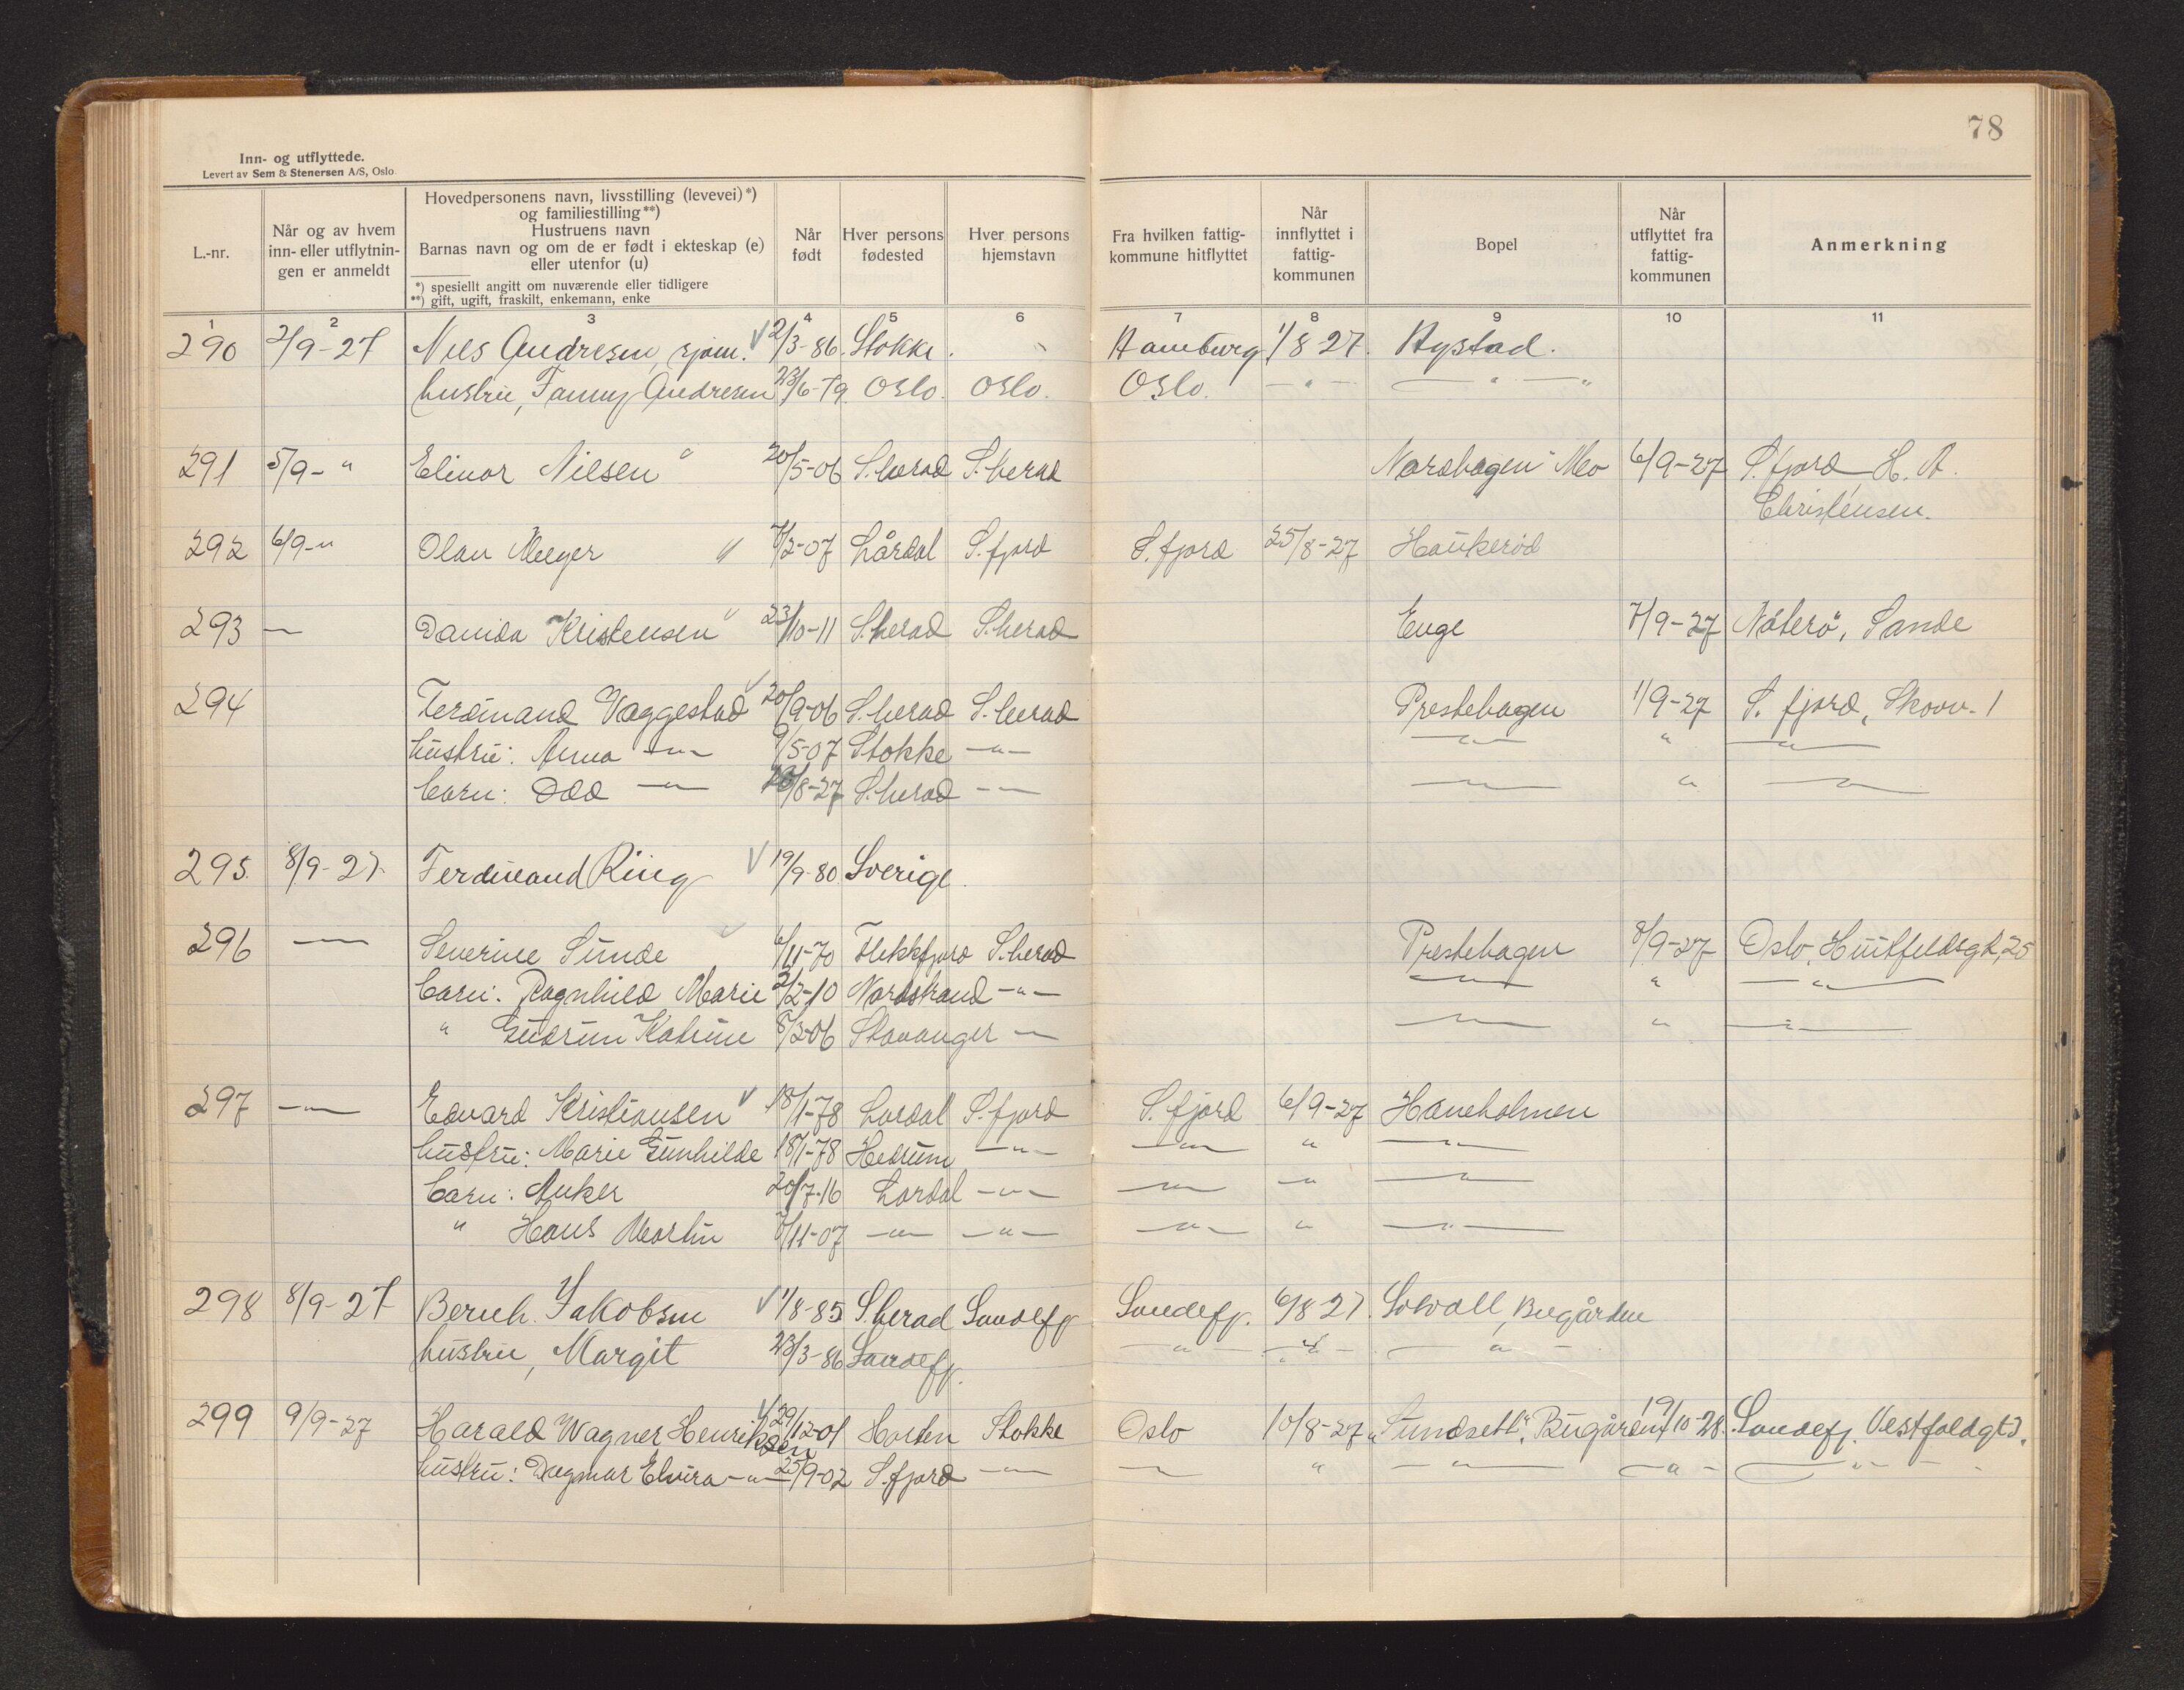 78
Inn- og utflyttede.
Levert av Sem & Stenersen A/S, Oslo.
L.-nr. Når og av hvem inn- eller utflytningen er anmeldt Hovedpersonens navn, livsstilling (levevei)*) og familiestilling**) Hustruens navn Barnas navn og om de er født i ekteskap (e) eller utenfor (u) *) spesiellt angitt om nuværende eller tidligere **) gift, ugift, fraskilt, enkemann, enke Når født Hver persons fødested Hver persons hjemstavn Fra hvilken fattigkommune hitflyttet Når innflyttet i fattigkommunen Bopel Når utflyttet fra fattigkommunen Anmerkning
1 2 3 4 5 6 7 8 9 10 11
290 2/9-27 Nils Andresen, sjøm. √ 2/3-86. Stokke. Hamburg 1/8 27. Nystad.
hustru, Fanny Andresen 23/6-79. Oslo. Oslo. Oslo. -"- -"-
291 5/9- " Elinor Nilsen 20/5-06 S.herad S.herad Nordhagen Mo 6/9-27 S.fjord H. A.
Christensen.
292 6/9-" Olav Meyer 7/2-07 Lårdal S.fjord S.fjord 25/8-27 Haukerød
293 — Davida Kristensen 23/10-11 S.herad S.herad Enge 7/9-27 Nøterö, Sande
294 Ferdinand Vaggestad √ 20/9-06 S.herad S.herad Prestehagen 1/9-27 S. fjord, Skovv. 1
hustru: Anna -"- 9/5-07 Stokke -"- -"- " -"-
barn: Odd -"- /8-27 S.herad -"- -"- " -"-
295. 8/9-27. Ferdinand Ring √ 19/9-80 Sverige.
296 -"- Severine Sunde 6/11-70 Flekkfjord S.herad Prestehagen 8/9-27 Oslo, Huitfeldsgt. 25
barn: Ragnhild Marie 2/2-10 Nordstrand -"- -"- " -"-
" Gudrun Katrine 8/3-06 Stavanger -"- -"- " -"-
297 -"- Edvard Kristiansen √ 18/1-78 Lardal S.fjord S.fjord 6/9-27 Haneholmen
hustru: Marie Gunhilde 18/1-78 Hedrum -"- -"- " -"-
barn: Anker 20/7-16 Lardal -"- -"- -"- -"-
" Hans Martin 7/11-07 -"- -"- -"- " -"-
298 8/9-27 Bernh. Jakobsen √ 1/8-85 S.herad Sandefj. Sandefj. 6/8 27. Solvall, Bugården
hustru, Margit 23/3-86 Sandefj. -"- -"- -"-
299 9/9-27 Harald Wagner Henriksen √ 29/12-01 Horten Stokke Oslo 10/8-27 "Sundsett", Bugården 19/10-28. Sandefj. Vestfoldgt 2.
hustru: Dagmar Elvira -"- 25/9-02 S.fjord -"- -"- " -"- -"- -"-